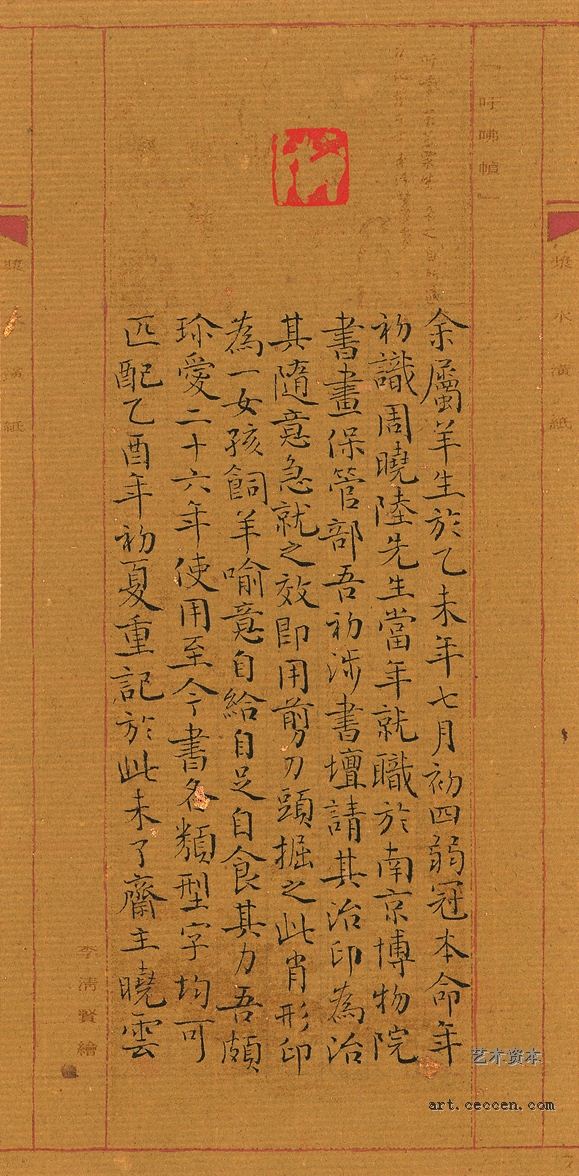 余屬羊生於乙未年七月初四弱冠本命年
初識周曉陸先生當年就職於南京博物院
書畫保管部吾初涉書壇請其治印為治
其隨意急就之效即用剪刀頭掘之此肖形印
為一女孩飼羊喻意自給自足自食其力吾頗
珎愛二十六年使用至今書各類型字均可
匹配乙酉年初夏重記於此未了齋主曉雲
李清賢繪
艺术资本
art.ceccen.com